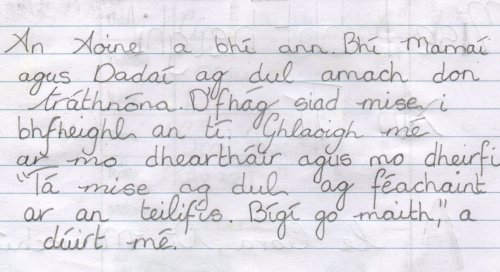 An Aoine a bhí ann. Bhí Mamaí
agus Dadaí ag dul amach don
tráthnóna. D'fhág siad mise i
bhfheighl an tí. Ghlaoigh mé
ar mo dheartháir agus mo dheirfi
"Tá mise ag dul ag féachaint
ar an teilifís. Bígí go maith," a
dúirt mé.